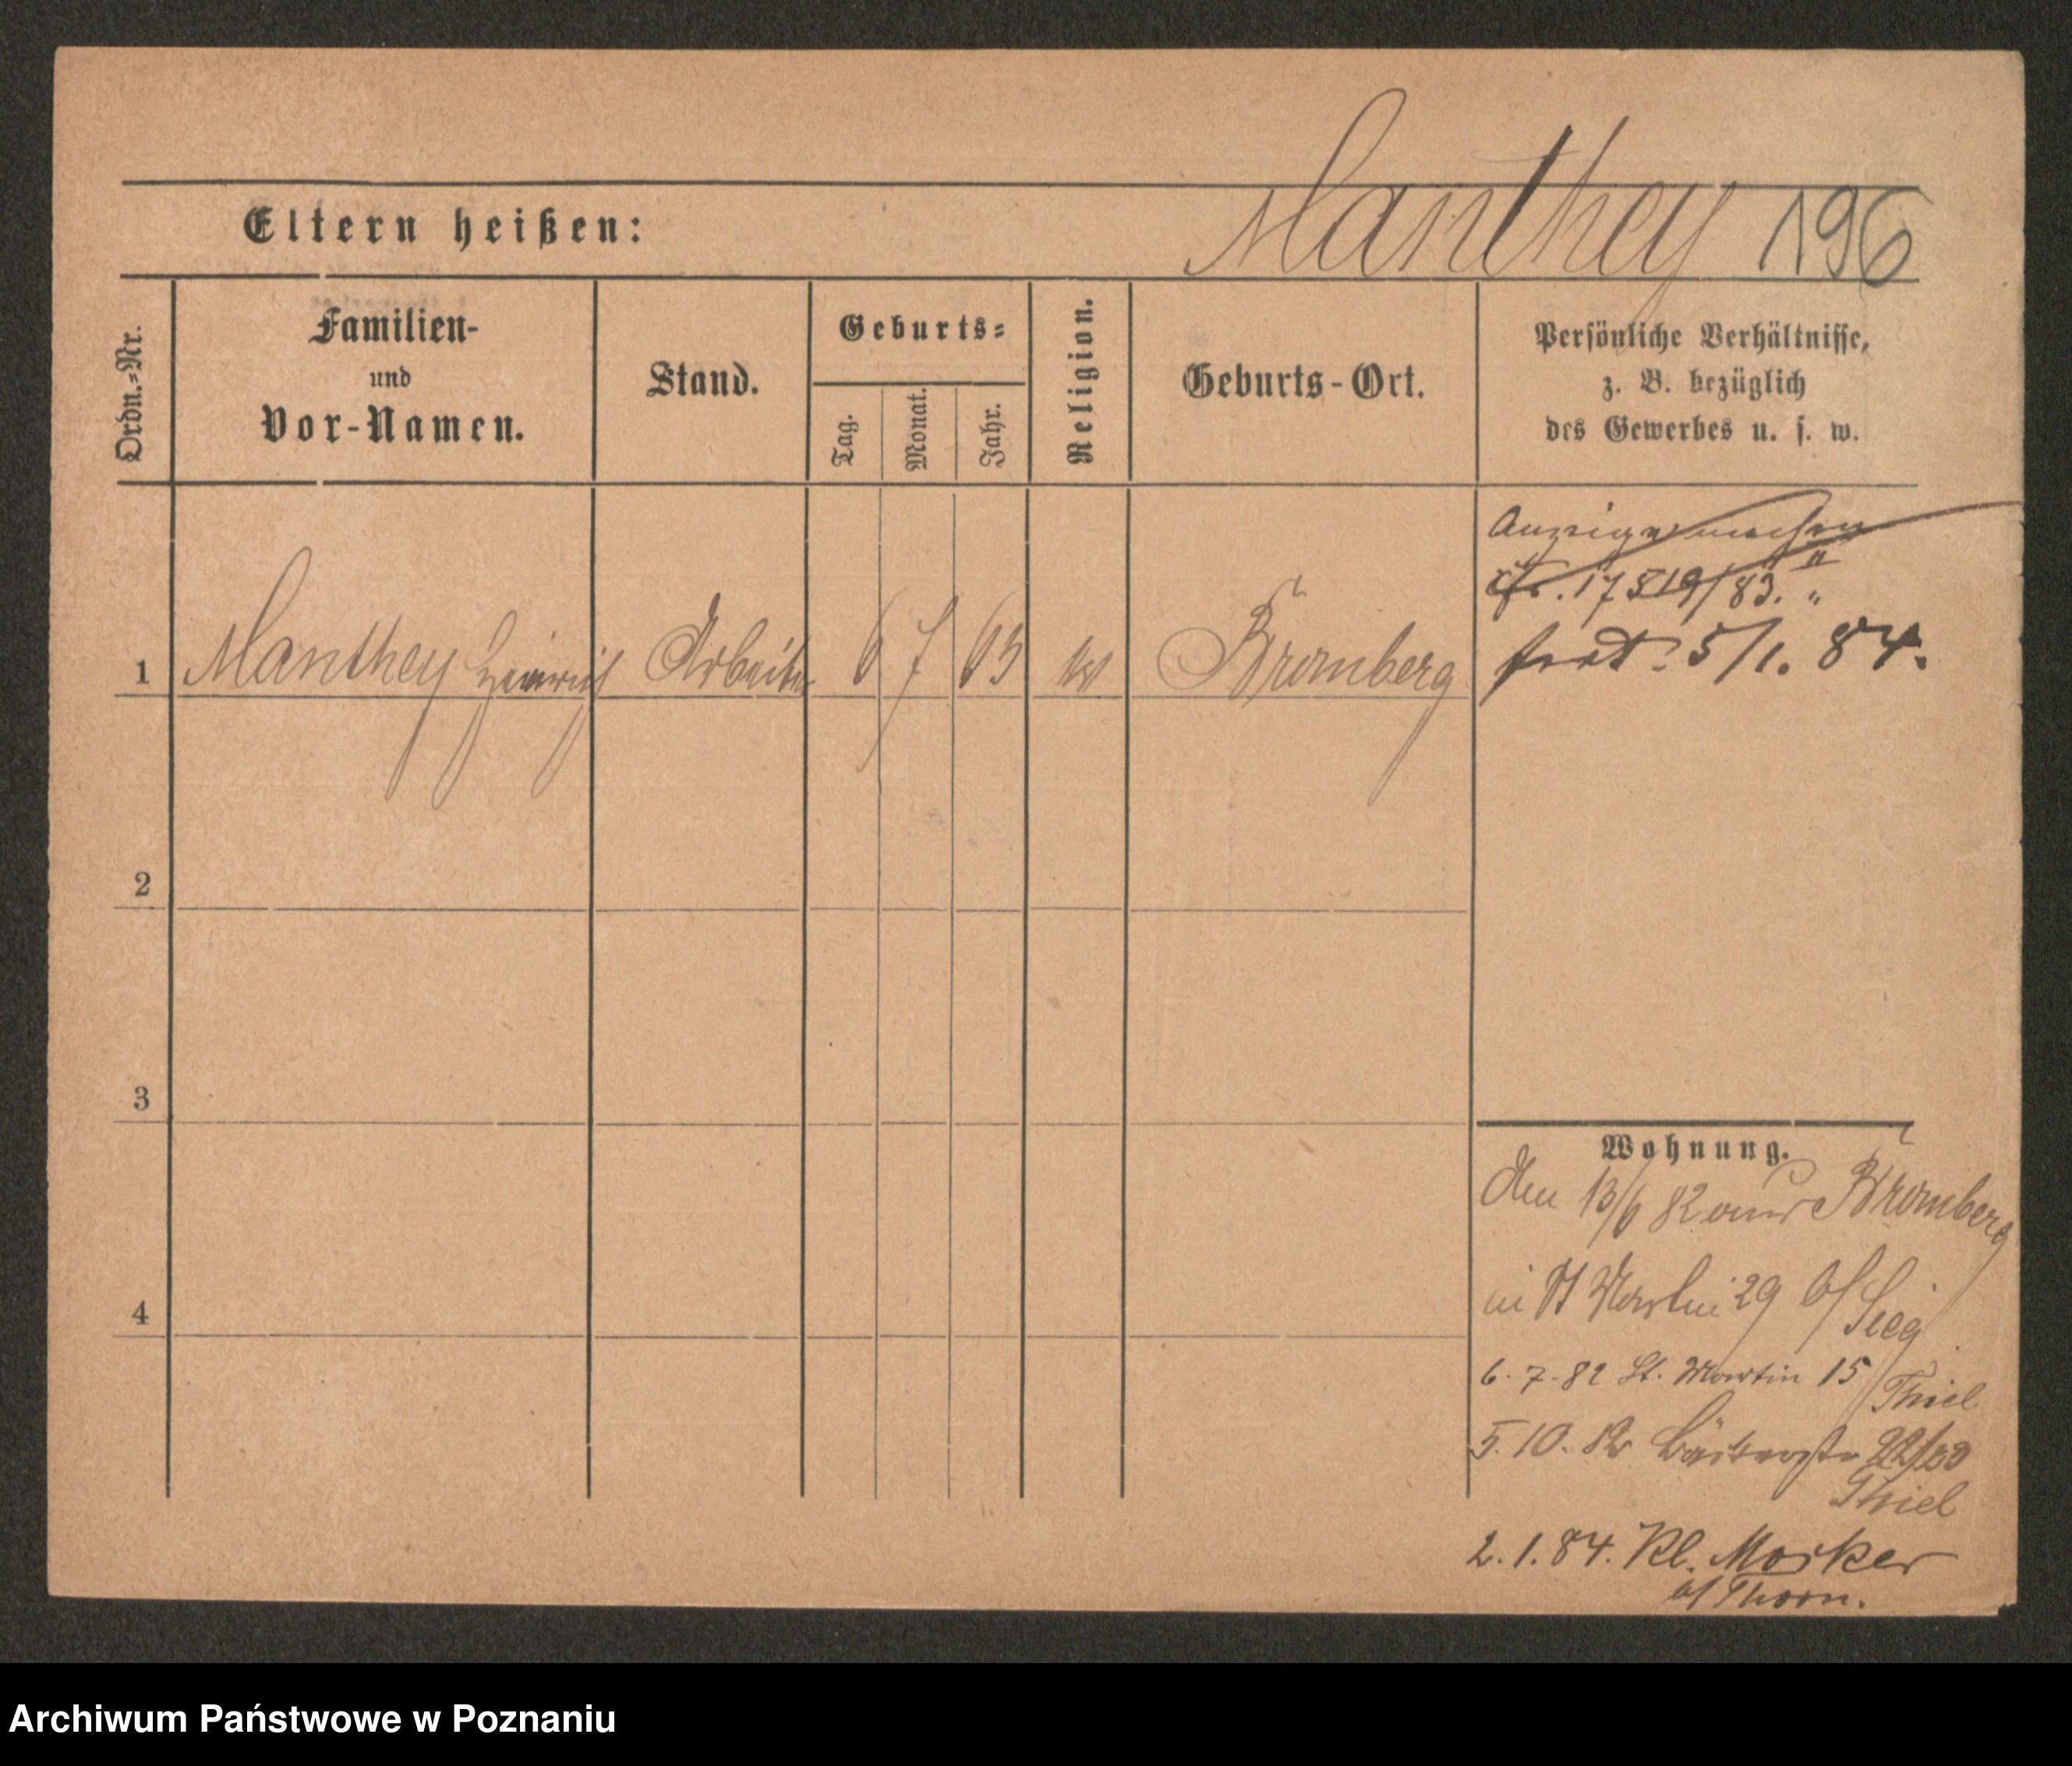 Manthey 196
Eltern heißen:
Ordn.-Nr.
Familien-
und
Vor-Namen.
Stand.
Geburts-
Tag.
Monat.
Jahr.
Religion.
Geburts-Ort.
Persönliche Verhältnisse,
z. B. bezüglich
des Gewerbes u. s. w.
1 Manthey Heinrich Arbeiter 6 7 63 Bromberg
Anzeige machen
cfr. 17519/83.
5/1. 84.
2
3
4
Wohnung.
Am 13/6 82 aus Bromberg
in St Martin 29 b/ Sieg
6. 7. 82 St. Martin 15/ Thiel
5. 10. 82 Bäckerstr 22/23
Thiel
2. 1. 84. Kl. Mocker
b/ Thorn.
Archiwum Państwowe w Poznaniu